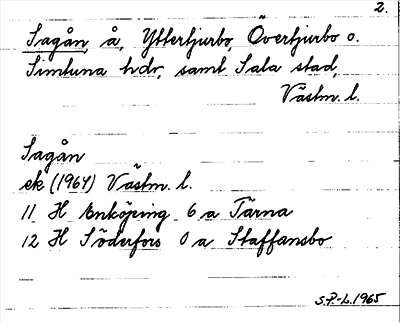 2.
Sagån, å, Yttertjurbo, Övertjurbo o.
Simtuna hdr, samt Sala stad,
Västm. l.
Sagån
ek (1964) Västm. l.
11 H Enköping 6 a Tärna
12 H Söderfors 0 a Staffansbo
S.P-L. 1965